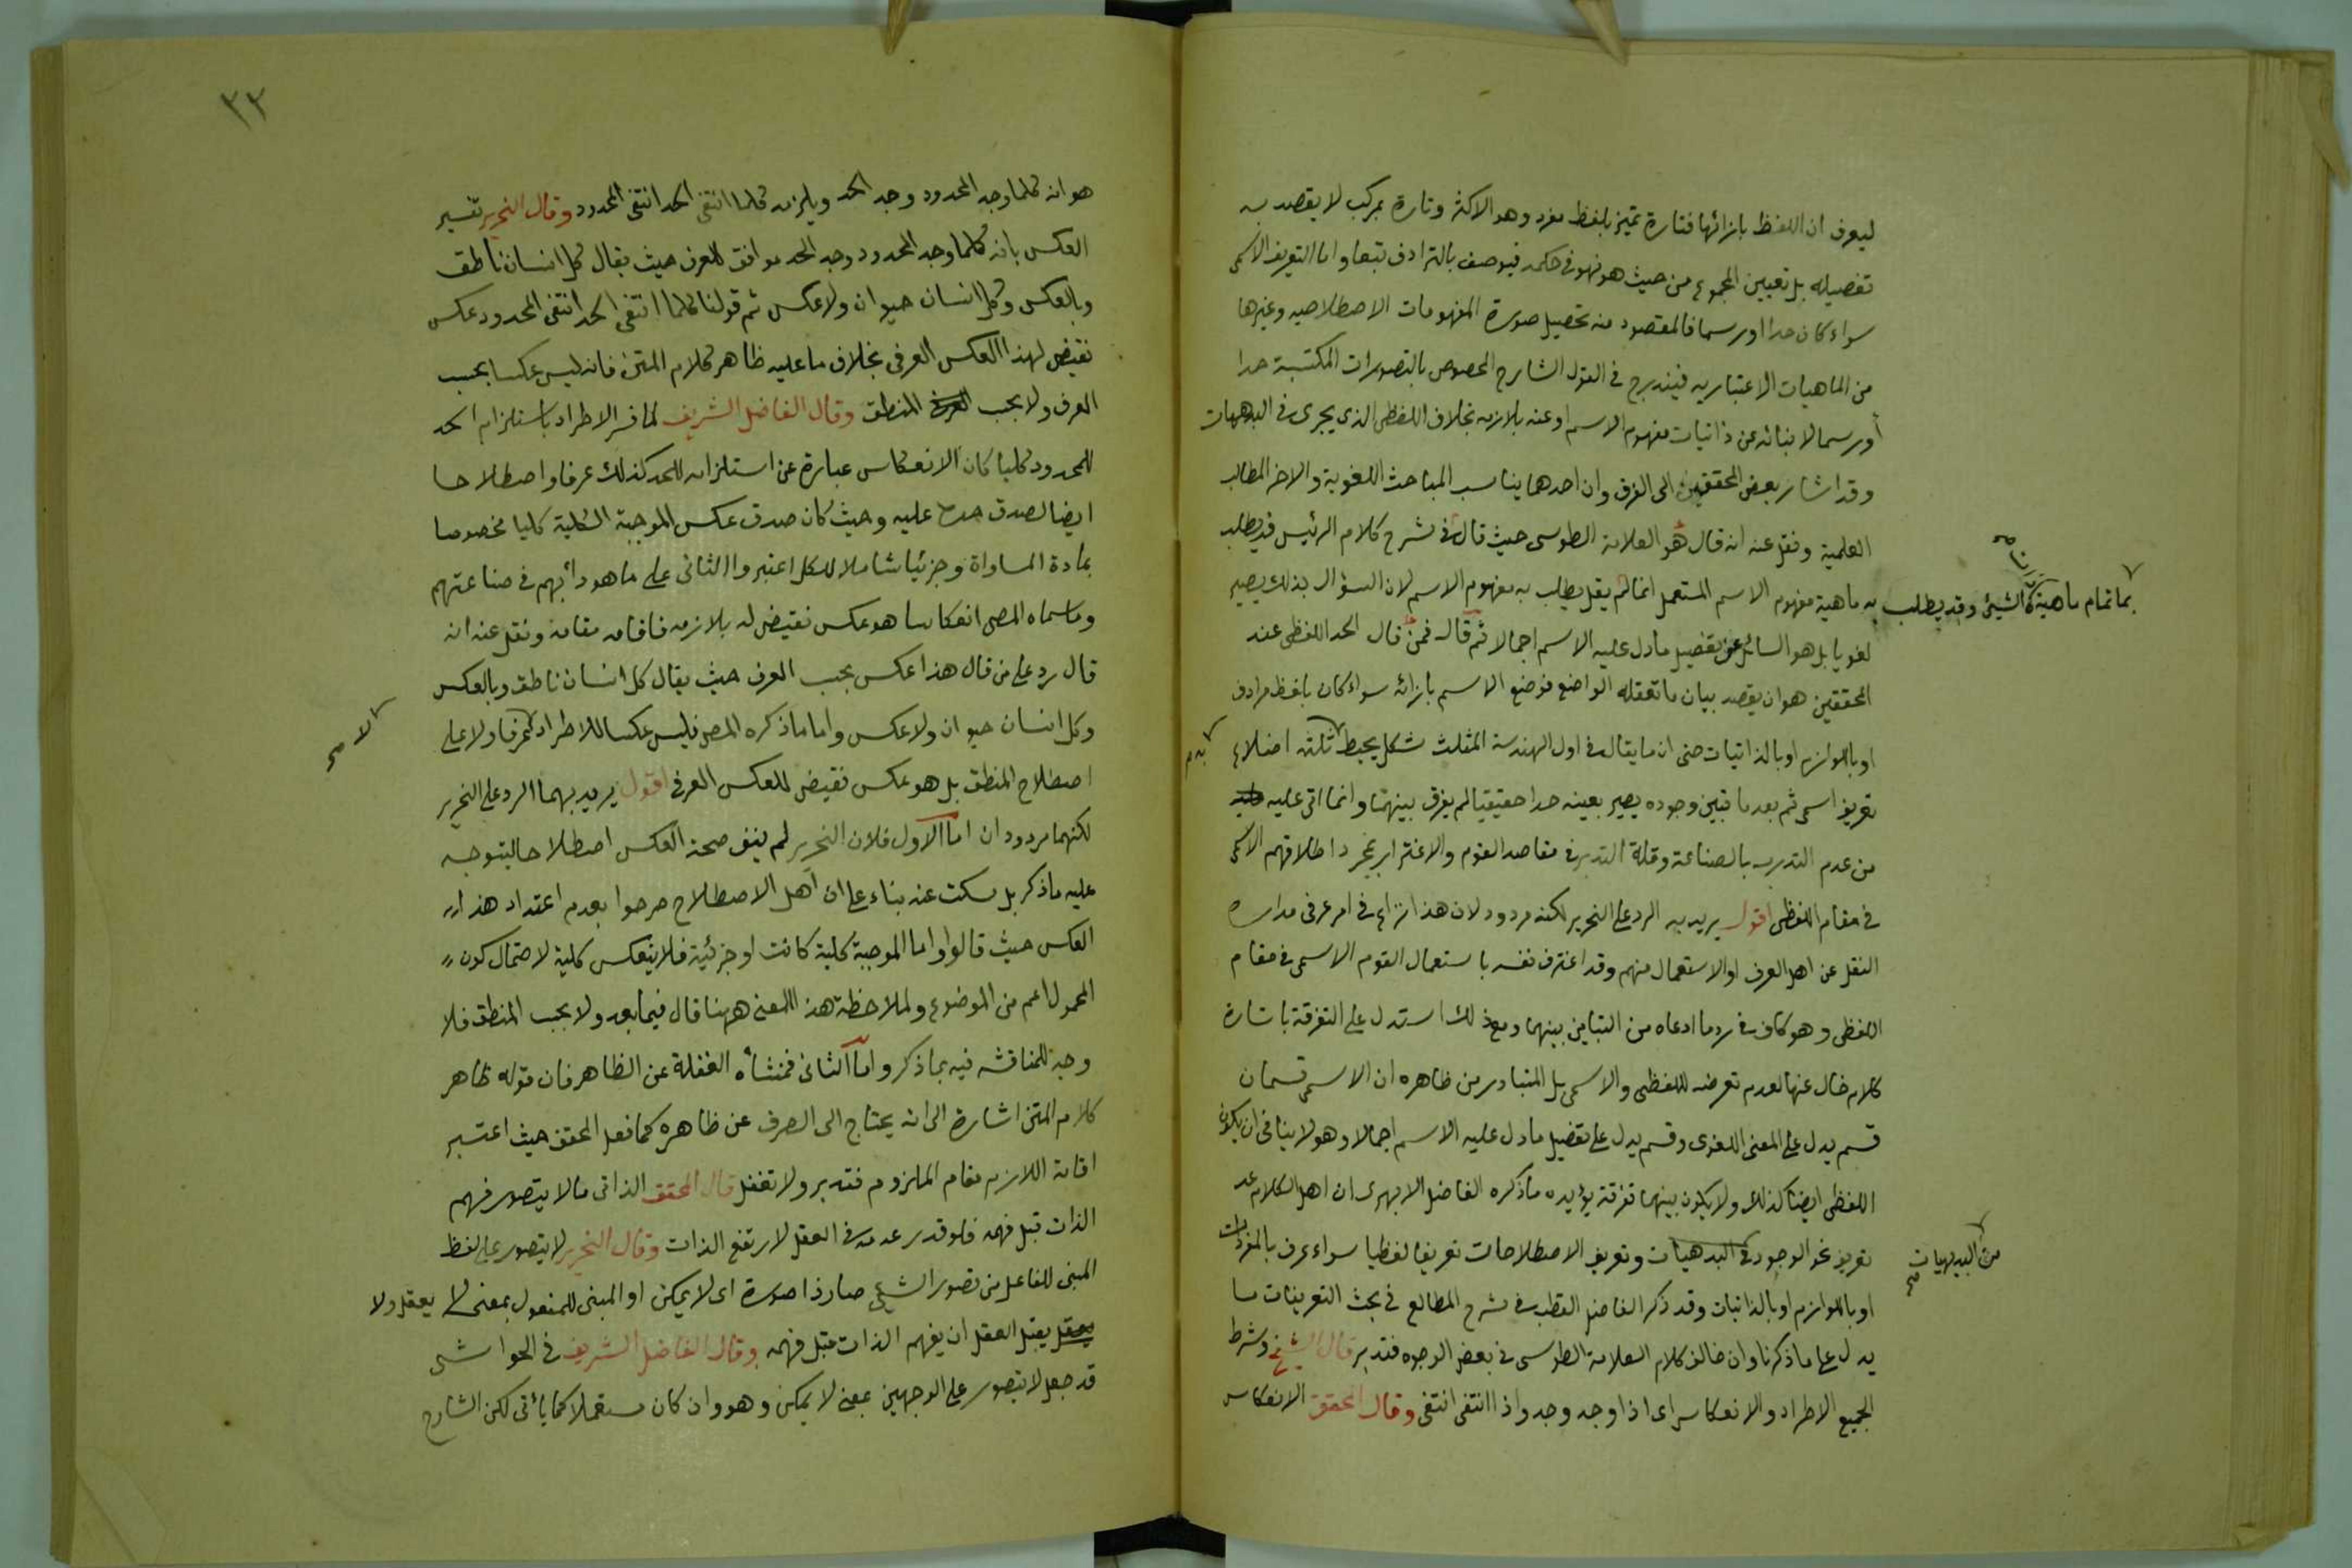 ليعرف ان اللفظ بازائها فتارة تميز بلفظ مفرد وهو الاكثر وتارة بمركب لا يقصد به
تفصيله بل تعيين المجموع من حيث هو فهو في حكمه فيوصف بالترادف تبعا واما التعريف الاسمى
سواء كان حدا او رسما فالمقصود منه تحصيل صورة المفهومات الاصطلاحيه وغيرها
من الماهيات الاعتباريه فيندرج في القول الشارح المخصوص بالتصورات المكتسبة حدا
أو رسما لانبائه عن ذاتيات مفهوم الاسم او عنه بلازمه بخلاف اللفظى الذى يجرى في البديهيات
وقد اشار بعض المحققين الى الفرق وان احدهما يناسب المباحث اللغوية والاخر المطالب
العلمية ونقل عنه انه قال هو العلامة الطوسى حيث قال في شرح كلام الرئيس قد يطلب
بما تمام ماهية الشيئ وقد يطلب
به ماهية مفهوم الاسم المستعمل انما لم يقل يطلب به مفهوم الاسم لان السؤال بذلك يصير
لغويا بل هو السائل عن تفصيل ما دل عليه الاسم اجمالا ثم قال فمن قال الحد اللفظى عند
المحققين هو ان يقصد بيان ما تعقله الواضع فوضع الاسم بازائه سواء كان بلفظ مرادف
او باللوازم او بالذاتيات حتى ان ما يقال في اول الهندسة المثلث شكل يحيط ثلثه اضلاع
به م
تعريف اسمى ثم بعد ما تبين وجوده يصير بعينه حدا حقيقيا لم يفرق بينهما وانما اتى عليه
من عدم التدرب بالصناعة وقلة التدبر في مقاصد القوم والاغترار بمجرد اطلاقهم الاسمى
في مقام اللفظى اقول يريد به الرد على النحرير لكنه مردود لان هذا نزاع في امر عرفى مداره
النقل عن اهل العرف او الاستعمال منهم وقد اعترف نفسه باستعمال القوم الاسمى في مقام
اللفظى وهو كاف في رد ما ادعاه من التباين بينهما ومع ذلك استدل على التفرقة باشارة
كلام خال عنها لعدم تعرضه للفظى والاسمى بل المتبادر من ظاهره ان الاسمى قسمان
قسم يدل على المعنى اللغوى وقسم يدل على تفصيل ما دل عليه الاسم اجمالا وهو لا ينافى ان يكون
اللفظى ايضا كذلك ولا يكون بينهما تفرقة يؤيده ما ذكره الفاضل الابهرى ان اهل الكلام عد
تعريف نحو الوجود في البديهيات وتعريف الاصطلاحات تعريفا لفظيا سواء عرف بالمفردات
من البديهيات صح
او باللوازم او بالذاتيات وقد ذكر الفاضل القطب في شرح المطالع في بحث التعريفات ما
يدل على ما ذكرنا وان خالف كلام العلامة الطوسى في بعض الوجوه فتدبر قال الشيخ وشرط
الجميع الاطراد والانعكاس اى اذا وجد وجد واذا انتفى انتفى وقال المحقق الانعكاس
٣٣
هو انه كلما وجد المحدود وجد الحد ويلزمه كلما انتفى الحد انتفى المحدود وقال النحرير تفسير
العكس بانه كلما وجد المحدود وجد الحد موافق للعرف حيث يقال كل انسان ناطق
وبالعكس وكل انسان حيوان ولا عكس ثم قولنا كلما انتفى الحد انتفى المحدود عكس
نقيض لهذا العكس العرفى بخلاف ما عليه ظاهر كلام المتن فانه ليس عكسا بحسب
العرف ولا بحسب المنطق وقال الفاضل الشريف لما فسر الاطراد باستلزام الحد
للمحدود كليا كان الانعكاس عبارة عن استلزامه للحد كذلك عرفا واصطلاحا
ايضا لصدق حده عليه وحيث كان صدق عكس الموجبة الكلية كليا مخصوصا
بمادة المساواة وجزئيا شاملا للكل اعتبروا الثانى على ما هو دأبهم في صناعتهم
وما سماه المص انعكاسا هو عكس نقيض له بلازمه فاقامه مقامه ونقل عنه انه
قال رد على من قال هذا عكس بحسب العرف حيث يقال كل انسان ناطق وبالعكس
وكل انسان حيوان ولا عكس واما ما ذكره المص فليس عكسا للاطراد عرفا ولا على
لا صح
اصطلاح المنطق بل هو عكس نقيض للعكس العرفى اقول يريد بهما الرد على النحرير
لكنهما مردودان اما الاول فلان النحرير لم ينف صحة العكس اصطلاحا ليتوجه
عليه ما ذكر بل سكت عنه بناء على ان اهل الاصطلاح صرحوا بعدم اعتداد هذا
العكس حيث قالوا واما الموجبة كلية كانت او جزئية فلا ينعكس كلية لاحتمال كون
المحمول اعم من الموضوع ولملاحظة هذا المعنى ههنا قال فيما بعد ولا بحسب المنطق فلا
وجه للمناقشه فيه بما ذكر واما الثانى فمنشأه الغفلة عن الظاهر فان قوله ظاهر
كلام المتن اشارة الى انه يحتاج الى الصرف عن ظاهره كما فعل المحقق حيث اعتبر
اقامة اللازم مقام الملزوم فتدبر ولا تغفل قال المحقق الذاتى ما لا يتصور فهم
الذات قبل فهمه فلو قدر عدمه في العقل لارتفع الذات وقال النحرير لا يتصور على لفظ
المبنى للفاعل من تصور الشيئ صار ذا صورة اى لا يمكن او المبنى للمفعول بمعنى لا يعقل ولا
يقبل العقل ان يفهم الذات قبل فهمه وقال الفاضل الشريف في الحواشى
قد جعل لا يتصور على الوجهين بمعنى لا يمكن وهو وان كان مستعملا كما يأتى لكن الشارح